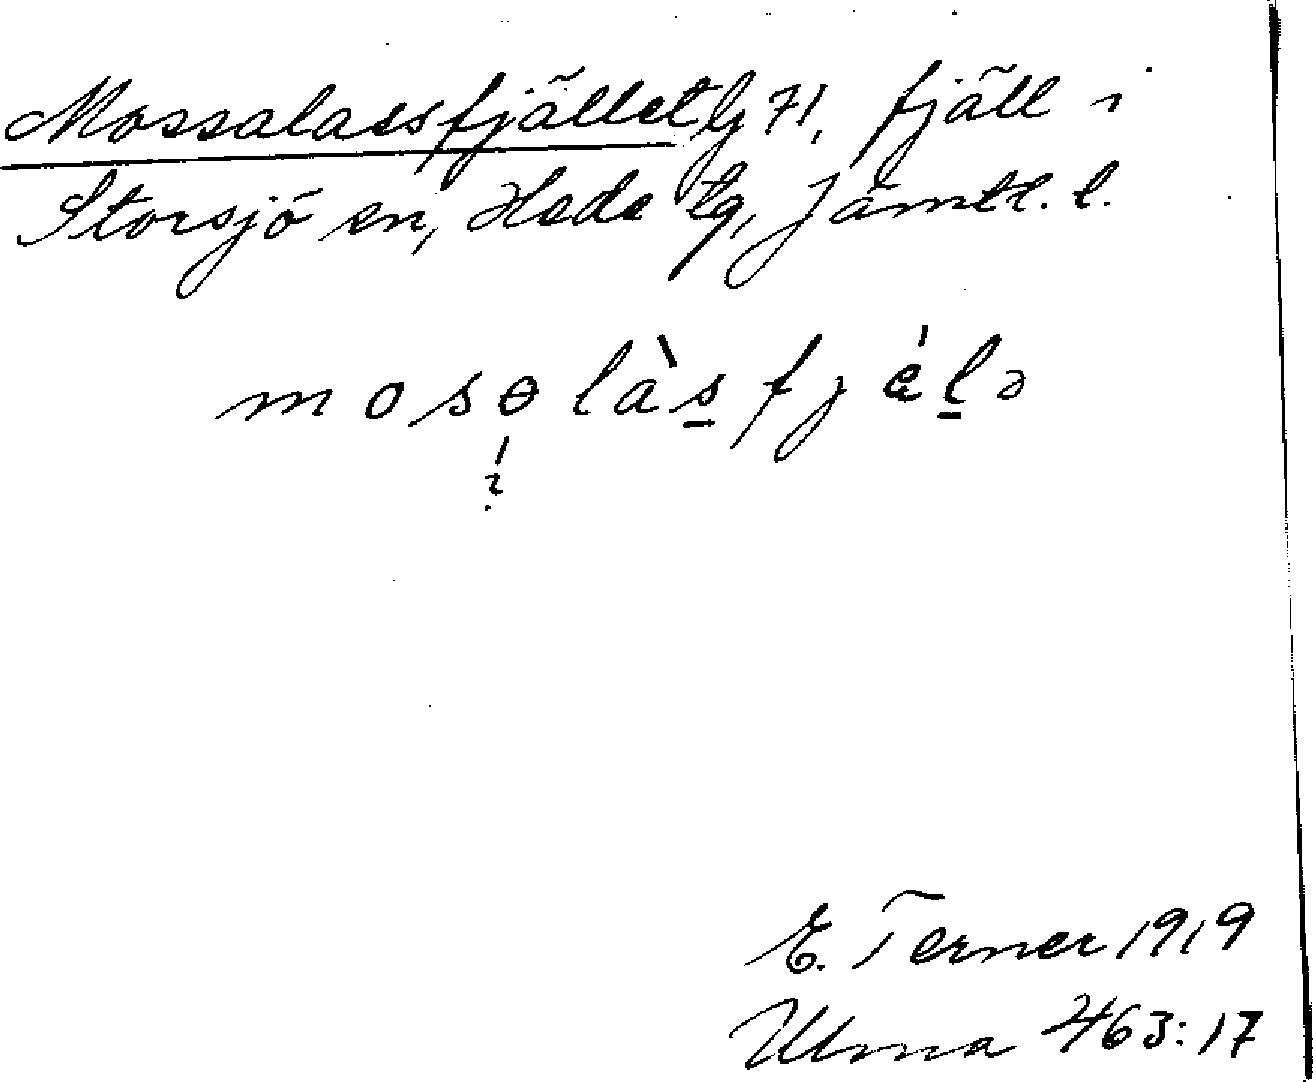 Mossalassfjället bg 71, fjäll i
Storsjö sn, Hede tg, Jämtl. l.
mosɵlàs̠fjǽl̠ə
i
E. Terner 1919
Ulma 463:17